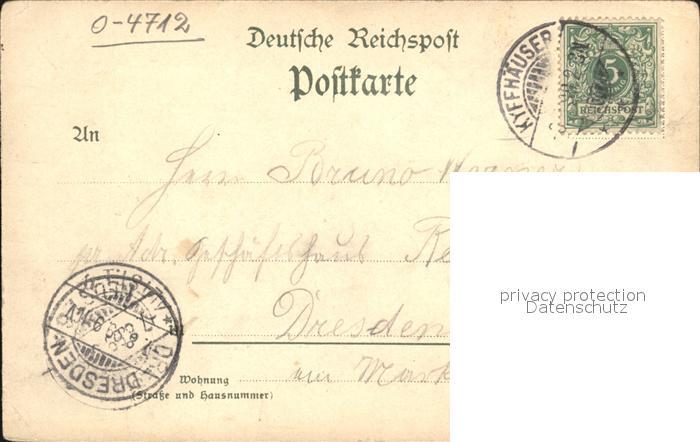 0-4712
Deutsche Reichspost
Postkarte
KYFFHÄUSER
5
REICHSPOST
An
Herrn Bruno
Geschäftshaus
Dresden
am Mark
DRESDEN
Wohnung
(Straße und Hausnummer)
privacy protection
Datenschutz